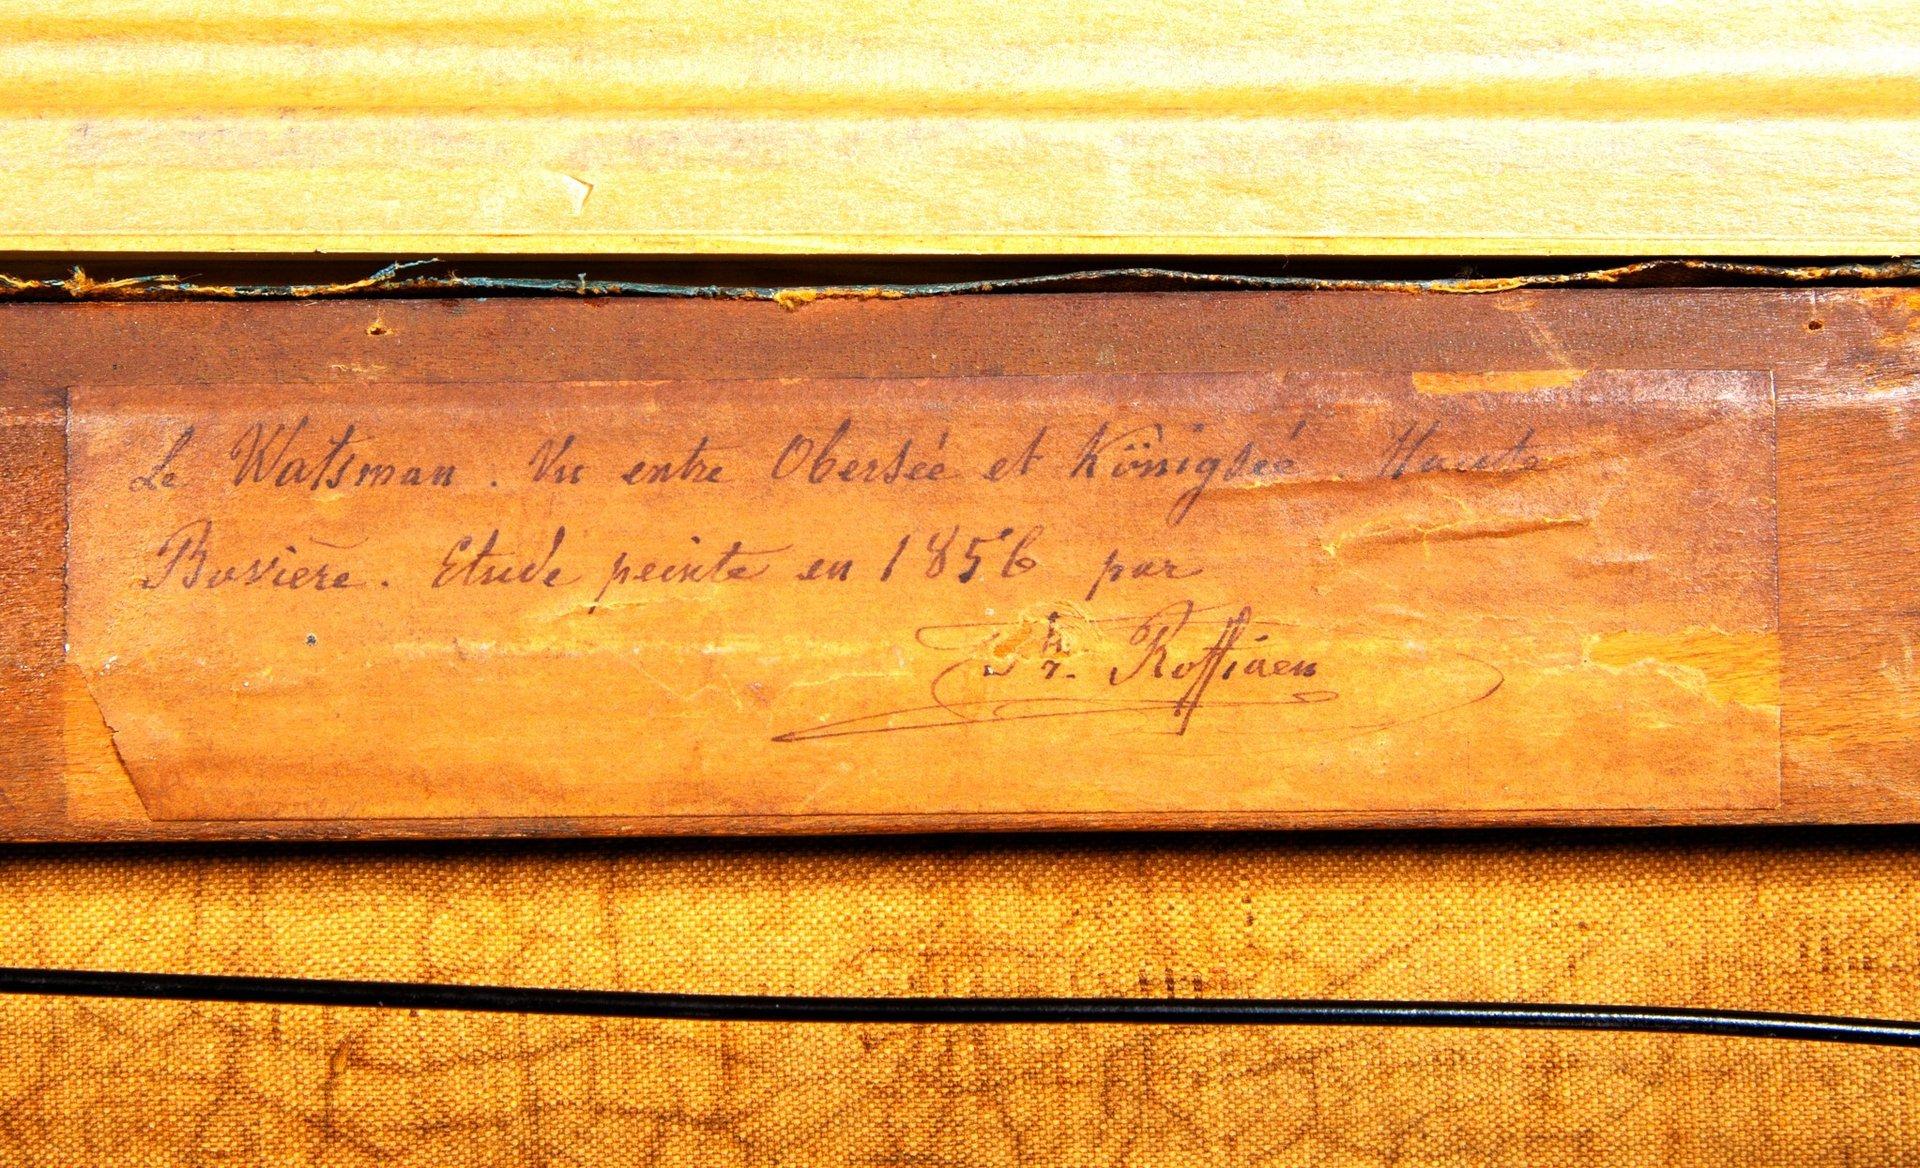 Le Watsman. Vu entre Obersée et Königsée. Haute
Bavière. Etude peinte en 1856 par
Roffiaen